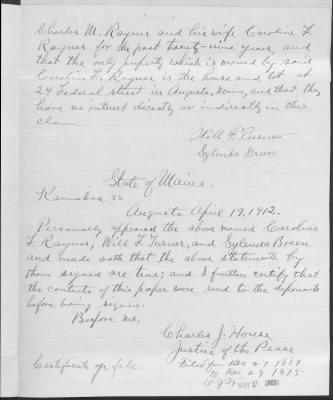 Charles M. Rayner and his wife Caroline F.
Rayner for the past twenty-nine years, and
that the only property which is owned by said
Caroline F. Rayner is the house and lot at
24 Federal street in Augusta, Maine, and that they
have no interest directly or indirectly in this
claim.
Will F. Turner
Sylenda Breen
State of Maine.
Kennebec ss.
Augusta April 19, 1912.
Personally appeared the above named Caroline
F. Rayner, Will F. Turner, and Sylenda Breen
and made oath that the above statements by
them signed are true; and I further certify that
the contents of this paper were read to the deponents
before being signed.
Before me,
Charles J. House
Justice of the Peace
Certificate on file
from Dec 29 1889
to Dec 29 1915
MAY